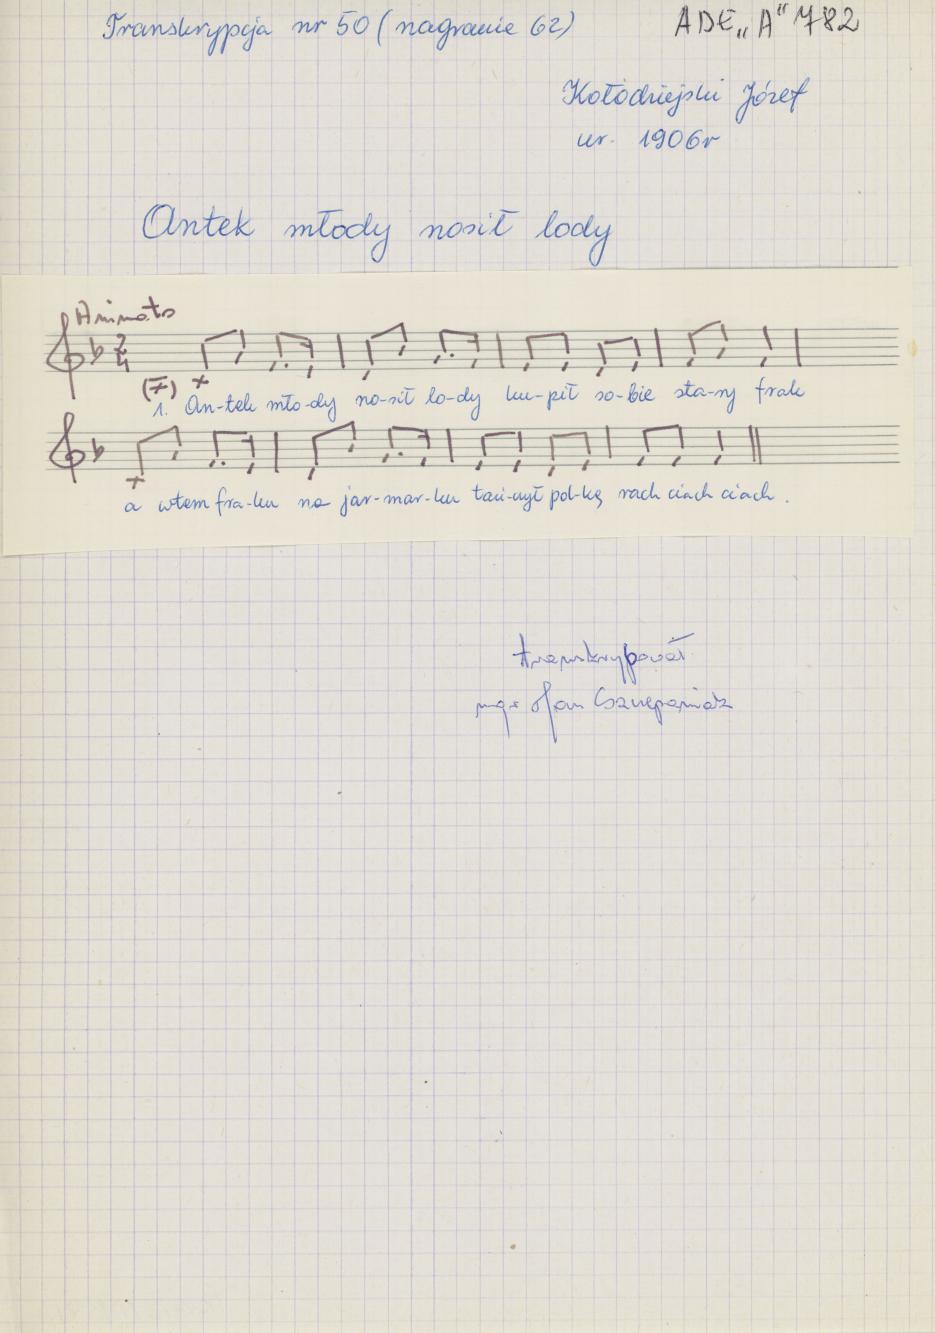 Transkrypcja nr 50 (nagranie 62)
ADE „A" 782
Kołodziejski Józef
ur. 1906r
Antek młody nosił lody
Animato
2
4
1. An-tek mło-dy no-sił lo-dy ku-pił so-bie sta-ry frak
a wtem fra-ku na jar-mar-ku tań-czył pol-kę rach ciach ciach.
transkrybował
mgr Jan Szczepaniak